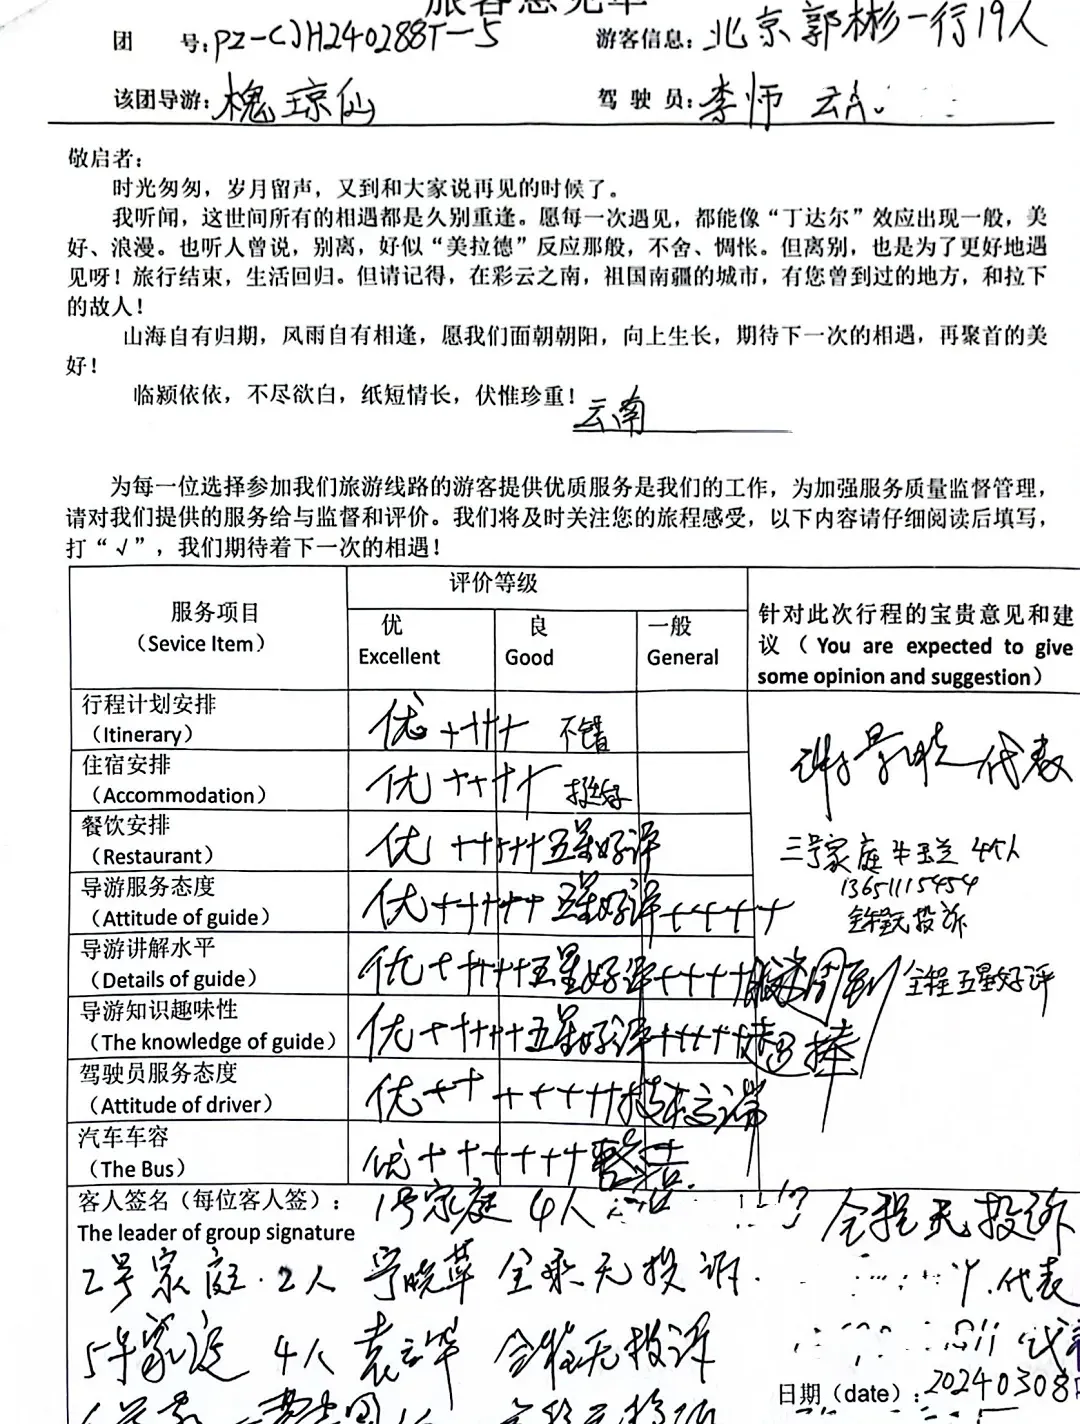 旅客意见单
团 号:PZ-CJH240288T-5 游客信息:北京郭彬一行19人
该团导游:槐琼仙 驾驶员:李师 云A
敬启者：
时光匆匆，岁月留声，又到和大家说再见的时候了。
我听闻，这世间所有的相遇都是久别重逢。愿每一次遇见，都能像“丁达尔”效应出现一般，美
好、浪漫。也听人曾说，别离，好似“美拉德”反应那般，不舍、惆怅。但离别，也是为了更好地遇
见呀！旅行结束，生活回归。但请记得，在彩云之南，祖国南疆的城市，有您曾到过的地方，和拉下
的故人！
山海自有归期，风雨自有相逢，愿我们面朝朝阳，向上生长，期待下一次的相遇，再聚首的美
好！
临颍依依，不尽欲白，纸短情长，伏惟珍重！云南
为每一位选择参加我们旅游线路的游客提供优质服务是我们的工作，为加强服务质量监督管理，
请对我们提供的服务给与监督和评价。我们将及时关注您的旅程感受，以下内容请仔细阅读后填写，
打“√”，我们期待着下一次的相遇！
服务项目
（Sevice Item）
评价等级
优
Excellent
良
Good
一般
General
针对此次行程的宝贵意见和建
议（You are expected to give
some opinion and suggestion）
行程计划安排
（Itinerary）
优++++ 不错
住宿安排
（Accommodation）
优++++ 挺好
餐饮安排
（Restaurant）
优+++++五星好评
导游服务态度
（Attitude of guide）
优+++++五星好评++++
导游讲解水平
（Details of guide）
优+++++五星好评++++服务周到
导游知识趣味性
（The knowledge of guide）
优+++++五星好评++++棒
驾驶员服务态度
（Attitude of driver）
优+++++++技术高端
汽车车容
（The Bus）
优++++++整洁
代表
三号家庭牛玉兰4个人
13651115454
全程无投诉
全程五星好评
客人签名（每位客人签）：
The leader of group signature
1号家庭 4人 全程无投诉
2号家庭.2人 全程无投诉. 代表
5号家庭 4人 袁云华 全程无投诉 代表
日期（date）:20240308
全程无投诉